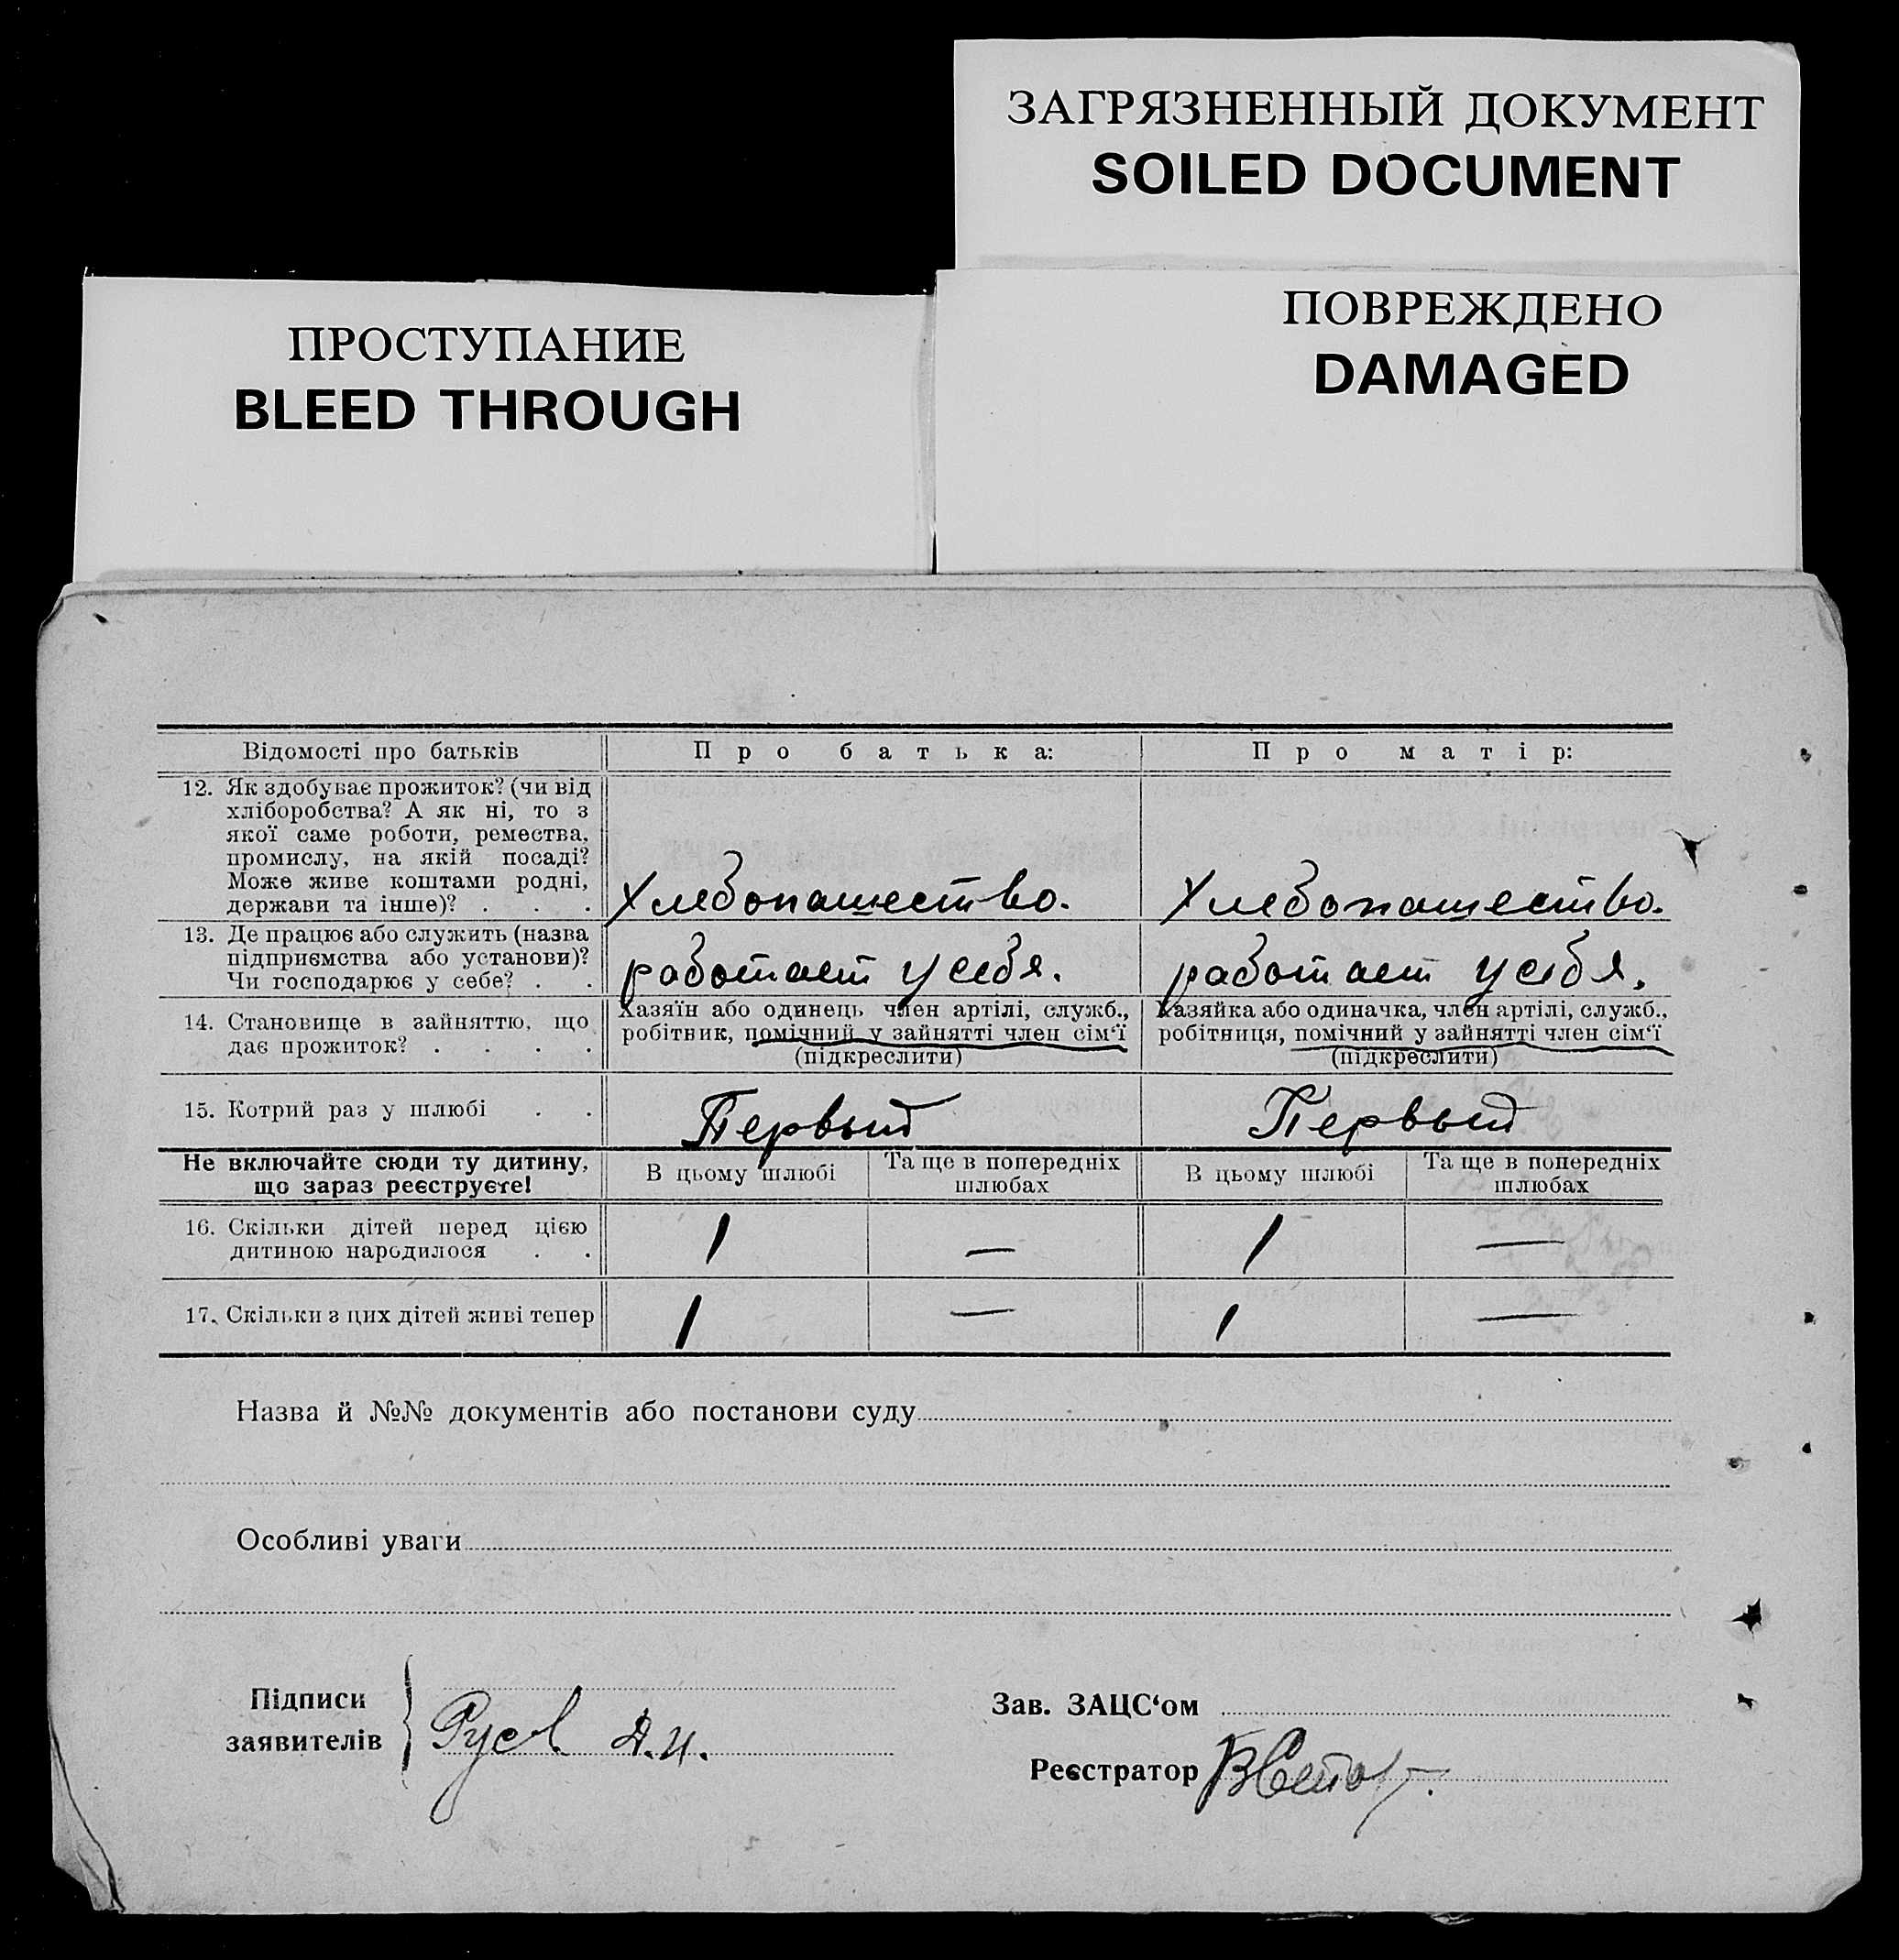 ЗАГРЯЗНЕННЫЙ ДОКУМЕНТ
SOILED DOCUMENT
ПОВРЕЖДЕНО
DAMAGED
ПРОСТУПАНИЕ
BLEED THROUGH
Відомості про батьків
Про батька:
Про матір:
12. Як здобуває прожиток? (чи від
хліборобства? А як ні, то з
якої саме роботи, ремества,
промислу, на якій посаді?
Може живе коштами родні,
держави та інше)? . . .
Хлебопашество.
Хлебопашество.
13. Де працює або служить (назва
підприємства або установи)?
Чи господарює у себе? . .
работает у себя.
работает у себя.
14. Становище в зайняттю, що
дає прожиток? . . . .
Хазяїн або одинець член артілі, служб.,
робітник, помічний у зайнятті член сім‘ї
(підкреслити)
Хазяйка або одиначка, член артілі, служб.,
робітниця, помічний у зайнятті член сім‘ї
(підкреслити)
15. Котрий раз у шлюбі . .
Первый
Первый
Не включайте сюди ту дитину,
що зараз реєструєте!
В цьому шлюбі
Та ще в попередніх
шлюбах
В цьому шлюбі
Та ще в попередніх
шлюбах
16. Скільки дітей перед цією
дитиною народилося . .
1
—
1
—
17. Скільки з цих дітей живі тепер
1
—
1
—
Назва й №№ документів або постанови суду
Особливі уваги
Підписи
заявителів
Д.И.
Зав. ЗАЦС‘ом
Реєстратор